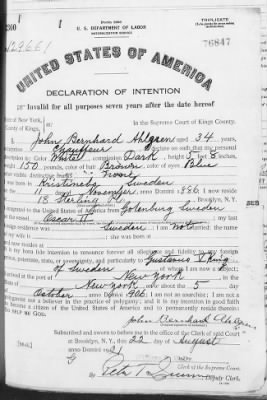 TRIPLICATE
U. S. DEPARTMENT OF LABOR
NATURALIZATION SERVICE
76847
UNITED STATES OF AMERICA
DECLARATION OF INTENTION
Invalid for all purposes seven years after the date hereof
of New York,
County of Kings,
In the Supreme Court of Kings County.
I, John Bernhard Ahlgren, aged 34 years,
occupation Chauffeur, do declare on oath that my personal
description is: Color White, complexion Dark, height 5 feet 8 inches,
weight 150 pounds, color of hair Brown, color of eyes Blue
other visible distinctive marks None
Kristineberg Sweden
on the 14 day of November, anno Domini 1886; I now reside
at 13 Sterling Pl, Brooklyn, N.Y.
I emigrated to the United States of America from Gotenburg Sweden
on the vessel Oscar II; my last
foreign residence was Sweden; I am not married; the name
of my wife is; she was born at
It is my bona fide intention to renounce forever all allegiance and fidelity to any foreign
prince, potentate, state, or sovereignty, and particularly to Gustavus V King
of Sweden, of whom I am now a subject;
I arrived at the port of New York, in the
State of New York, on or about the 5 day
of October, anno Domini 1906; I am not an anarchist; I am not a
polygamist nor a believer in the practice of polygamy; and it is my intention in good faith
to become a citizen of the United States of America and to permanently reside therein:
SO HELP ME GOD.
John Bernhard Ahlgren
Subscribed and sworn to before me in the office of the Clerk of said Court
at Brooklyn, N.Y., this 22 day of August
anno Domini 1921
[SEAL]
Clerk of the Supreme Court.
By, Deputy Clerk.